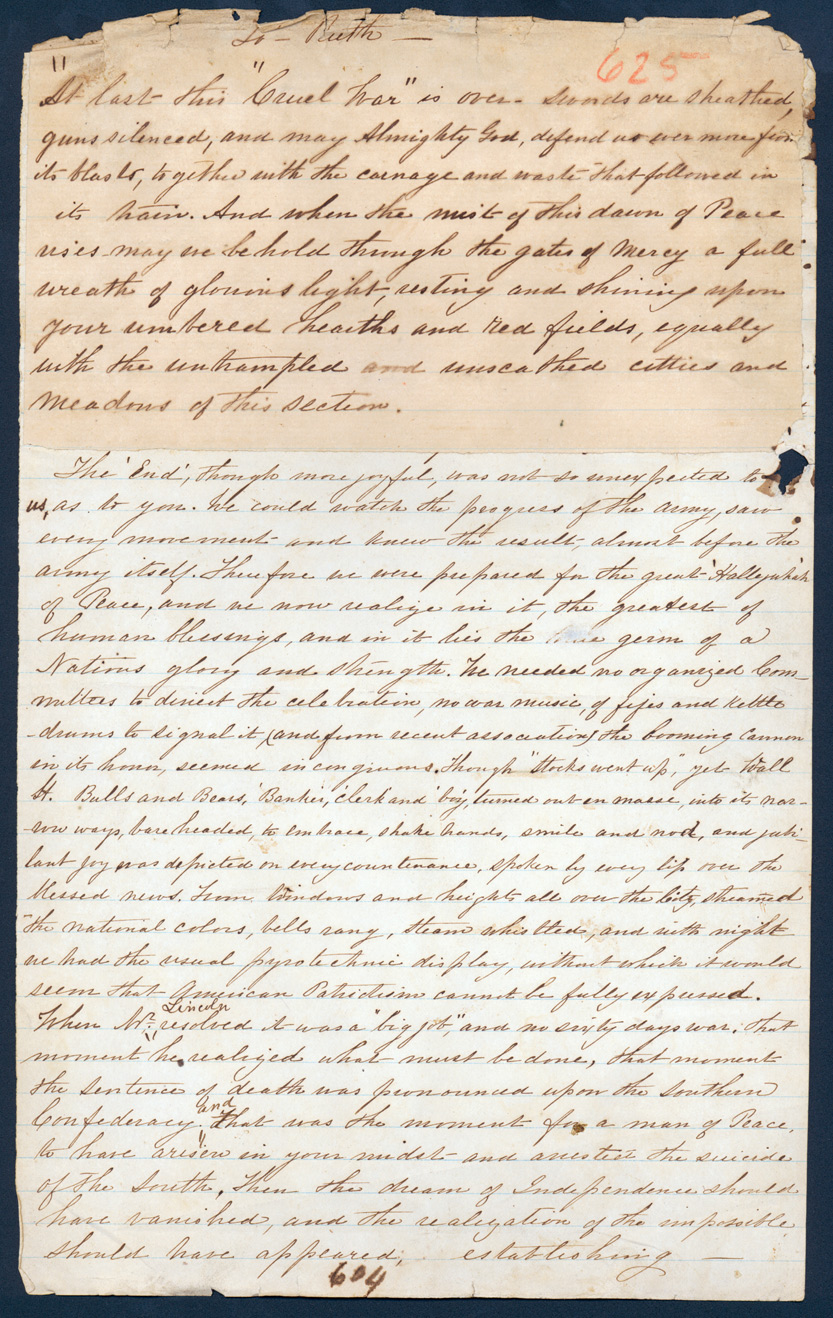 To – Ruth –
625
"At last this "Cruel War" is over. Swords are sheathed,
guns silenced, and may Almighty God, defend us ever more from
its blasts, together with the carnage and waste that followed in
its train. And when the mist of this dawn of Peace
rises may we behold through the gates of Mercy a full
wreath of glorious light, resting and shining upon
your umbered hearths and red fields, equally
with the untrampled and unscathed citties and
meadows of this section.
The 'End', though more joyful, was not so unexpected to
us, as to you. We could watch the progress of the army, saw
every movement and knew the result, almost before the
army itself. Therefore we were prepared for the great 'Hallejuhah'
of Peace, and we now realize in it, the greatest of
human blessings, and in it lies the germ of a
Nations glory and strength. We needed no organized Com-
mittees to direct the celebration, no war music, of fifes and kettle
-drums to signal it, (and from recent association) the booming cannon
in its honor, seemed incongruous. Though "Stocks went up", yet Wall
St. Bulls and Bears, 'Banker, 'clerk and' boy, turned out en masse, into its nar-
row ways, bare headed, to embrace, shake hands, smile and nod, and jubi-
lant joy was depicted on every countenance, spoken by every lip over the
blessed news. From Windows and heights all over the City, streamed
the national colors, bells rang, steam whistled, and with night
we had the usual pyrotechnic display, without which it would
seem that American Patriotism cannot be fully expressed.
When Mr. Lincoln resolved it was a "big job," and no sixty days war; that
moment he realized what must be done, that moment
the sentence of death was pronounced upon the southern
Confederacy. and that was the moment for a man of Peace,
to have arisen in your midst and arrested the suicide
of the South. Then the dream of Independence should
have vanished, and the realization of the impossible
should have appeared, establishing —
604